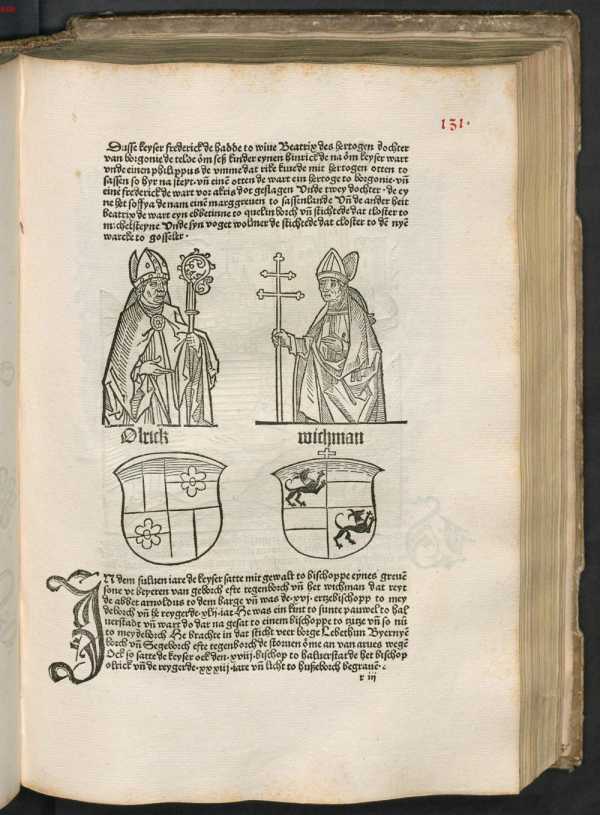 131.
Dusse keyser frederick de hadde to wiue Beatrix des hertogen dochter
van borgonie de telde om seß kinder eynen hinrick de na om keyser wart
vnde einen philippus de vmme dat rike kiuede mit hertogen otten to
sassen so hyr na steyt. vn̄ einē otten de wart ein hertoge to borgonie. vn̄
einē frederick de wart vor akris dot geslagen Vnde twey dochter. de ey
ne het soffya de nam einē marggreuen to sassenlande Vn̄ de ander heit
beatrix de wart eyn ebbetinne to quelin borch vn̄ stichtede dat closter to
michelsteyne Vnde syn voget wolmer de stichtede dat closter to dē nyē
warcke to gosseler.
Olrick wichman
IN dem suluen iare de keyser satte mit gewalt to bischoppe eynes greuē
sone vt beyeren van gebord efte tegenborch vn̄ het wichman dat reyt
de abbet arnoldus to dem barge vn̄ was de .xvj. ertzebischopp to mey
deborch vn̄ be reygerde .xlij. iar He was ein kint to sunte pauwel to hal
uerstadt vn̄ wart do dar na gesat to einem bischoppe to zutze vn̄ so nū
to meydeborch He brachte in dat sticht veer borge Lebethun Byernyē
borch vn̄ Segeborch efte tegenborch de storuen ome an van arues wegē
Ock so satte de keyser ock den .xviij. bischop to haluerstat de het bischop
olrick vn̄ de reygerde .xxxiij. iare vn̄ licht to hußeborch begrauē.
r iij